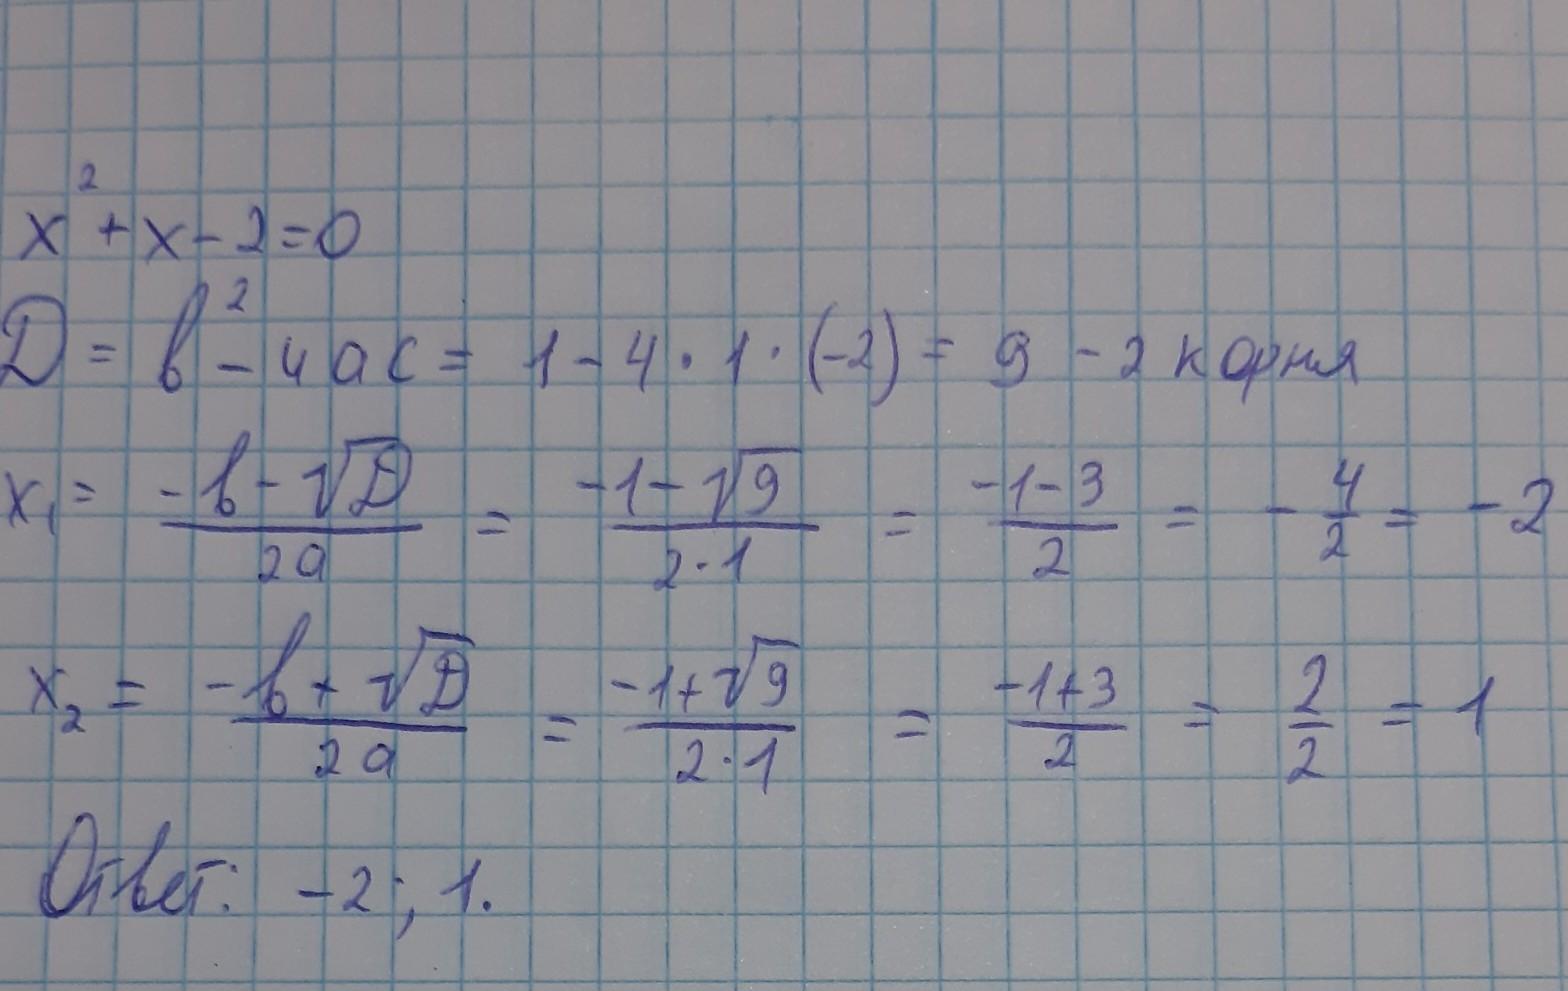 x² + x - 2 = 0
D = b² - 4ac = 1 - 4 · 1 · (-2) = 9 - 2 корня
x₁ = (-b - √D)/(2a) = (-1 - √9)/(2·1) = (-1-3)/2 = -4/2 = -2
x₂ = (-b + √D)/(2a) = (-1 + √9)/(2·1) = (-1+3)/2 = 2/2 = 1
Ответ: -2; 1.